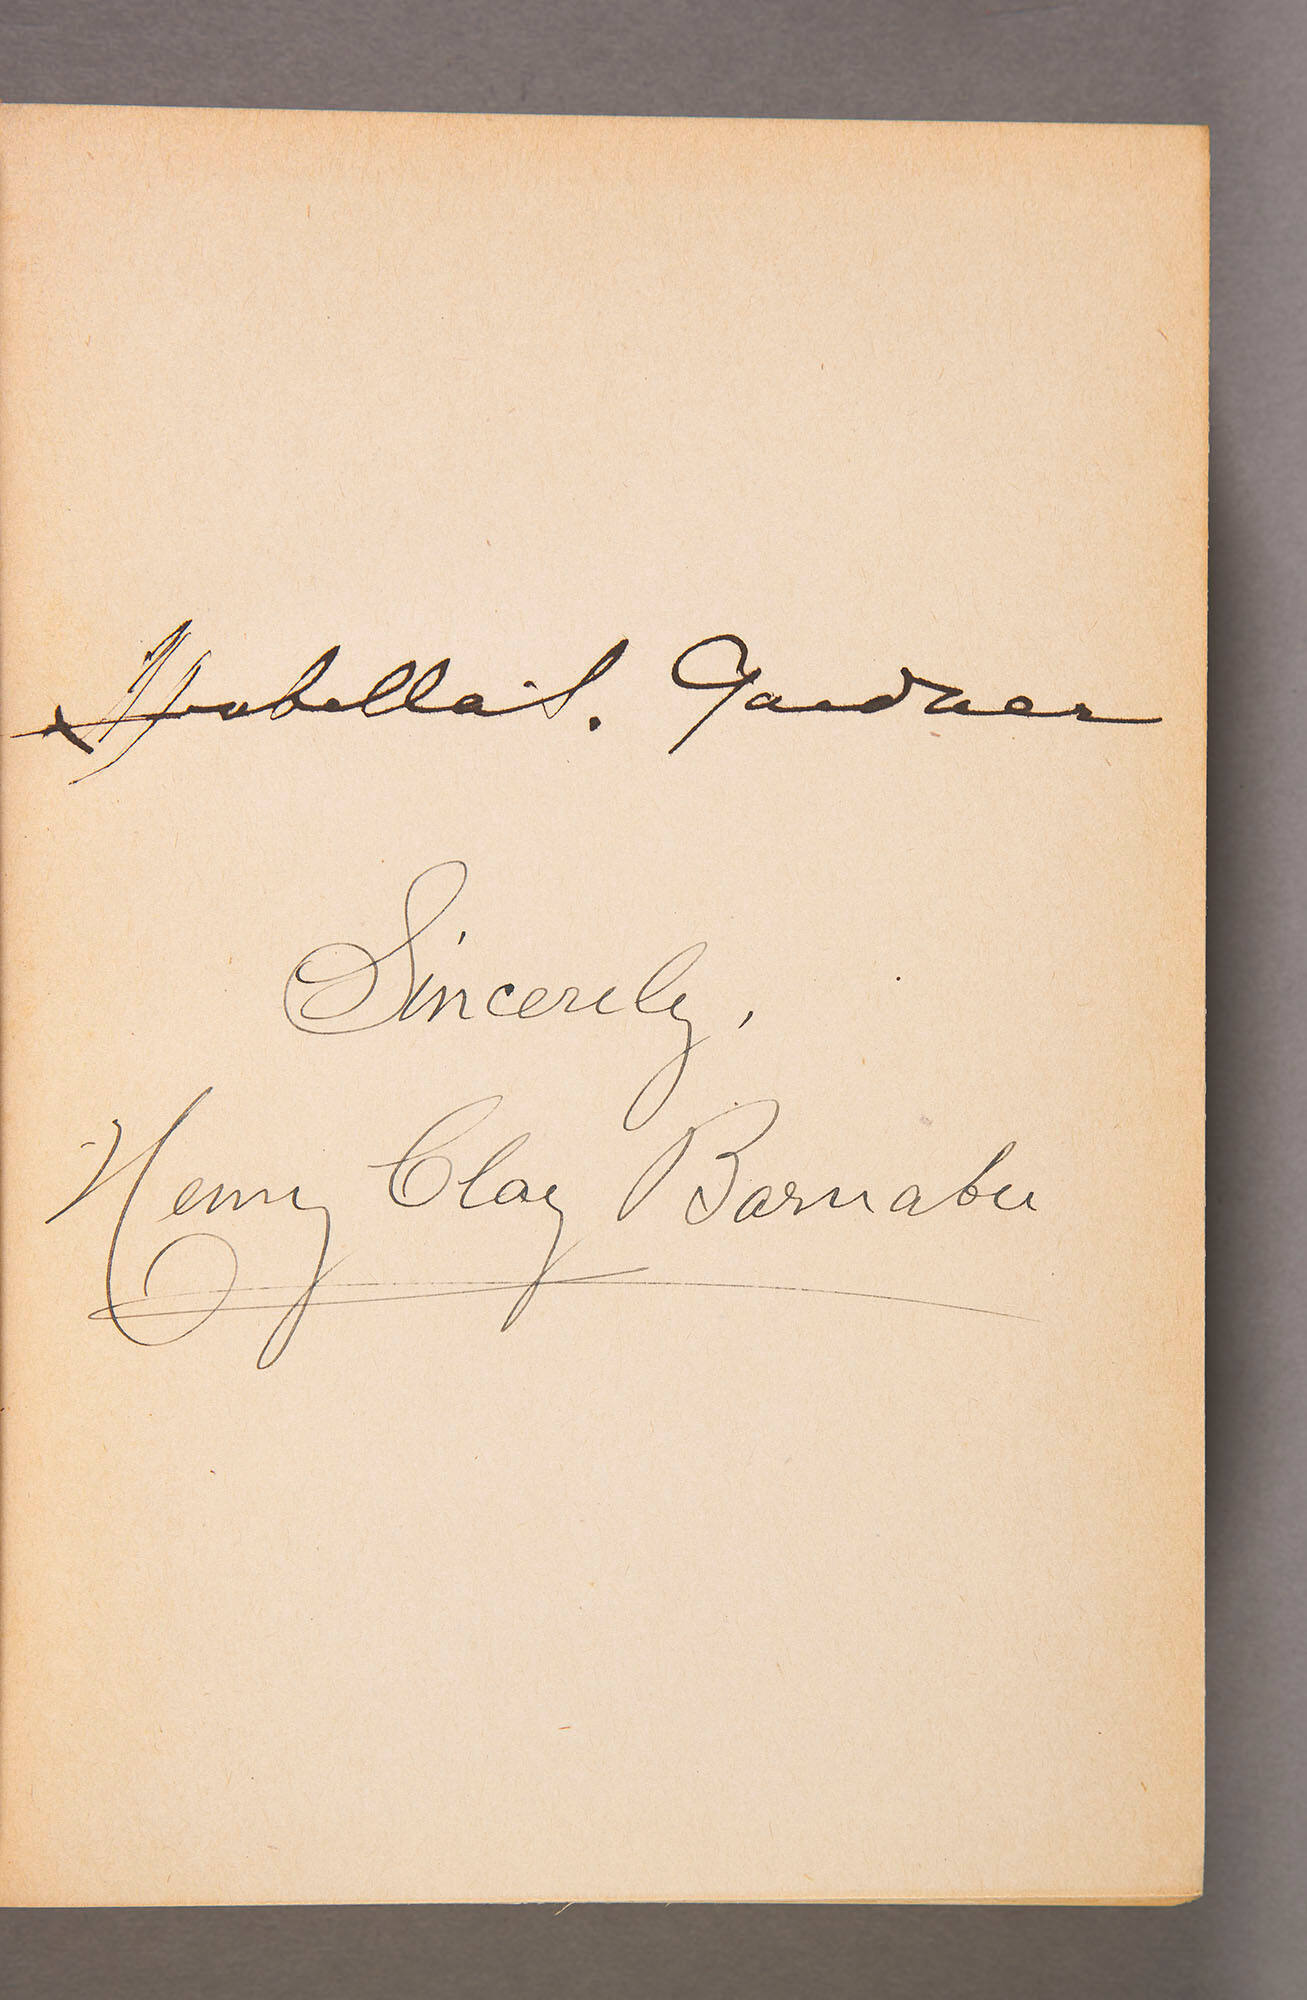 Isabella S. Gardner
Sincerely,
Henry Clay Barnabee